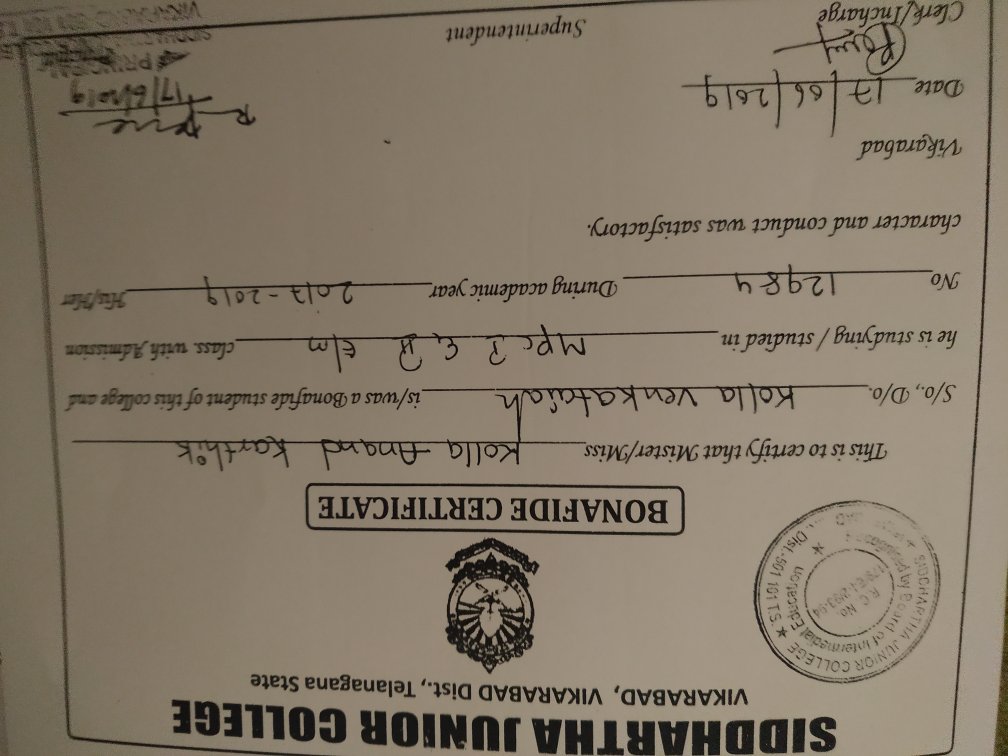 SIDDHARTHA JUNIOR COLLEGE
VIKARABAD, VIKARABAD Dist., Telanagana State
SIDDHARTHA JUNIOR COLLEGE ★ Dist.-501 101 T.S. ★
Recognised by Board of Intermediat Education ★
R.C. No.
BONAFIDE CERTIFICATE
This is to certify that Mister/Miss Kolla Anand Karthik
S/o., D/o. Kolla Venkataiah is/was a Bonafide student of this college and
he is studying / studied in MPC I & II E/M class. with Admission
No 12984 During academic year 2017-2019 His/Her
character and conduct was satisfactory.
Vikarabad
Date 17/06/2019
17/6/2019
PRINCIPAL
Clerk/Incharge Superintendent SIDDHARTHA